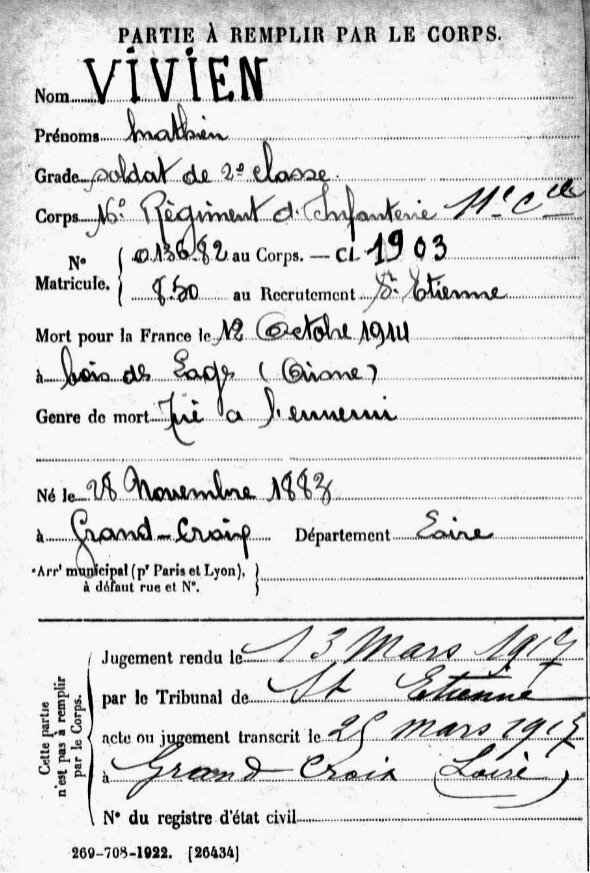 PARTIE À REMPLIR PAR LE CORPS.
Nom VIVIEN
Prénoms Mathieu
Grade soldat de 2e classe
Corps 16e Régiment d'Infanterie 11e Cie
N° Matricule. { 013682 au Corps. — Cl 1903
850 au Recrutement St Etienne
Mort pour la France le 12 Octobre 1914
à bois des Loges (Oise)
Genre de mort Tué a l'ennemi
Né le 28 Novembre 1883
à Grand-Croix Département Loire
Arrt municipal (pr Paris et Lyon), à défaut rue et N°. }
Cette partie n'est pas à remplir par le Corps.
Jugement rendu le 13 Mars 1917
par le Tribunal de St Etienne
acte ou jugement transcrit le 25 mars 1917
à Grand Croix (Loire)
N° du registre d'état civil
269-708-1922. [26434]